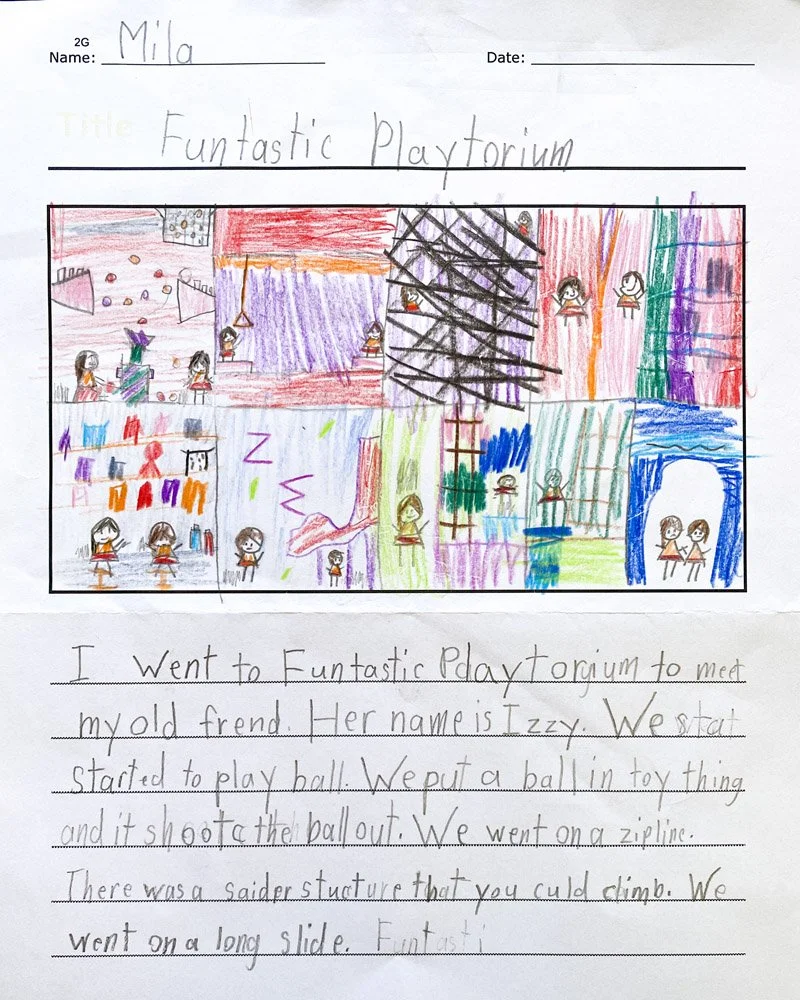 2G
Name: Mila
Date:
Title
Funtastic Playtorium
I went to Funtastic Pdaytorgium to meet
my old frend. Her name is Izzy. We stat
started to play ball. We put a ball in toy thing
and it shoot the ball out. We went on a zipline.
There was a saider stucture that you culd climb. We
went on a long slide. Funtasti